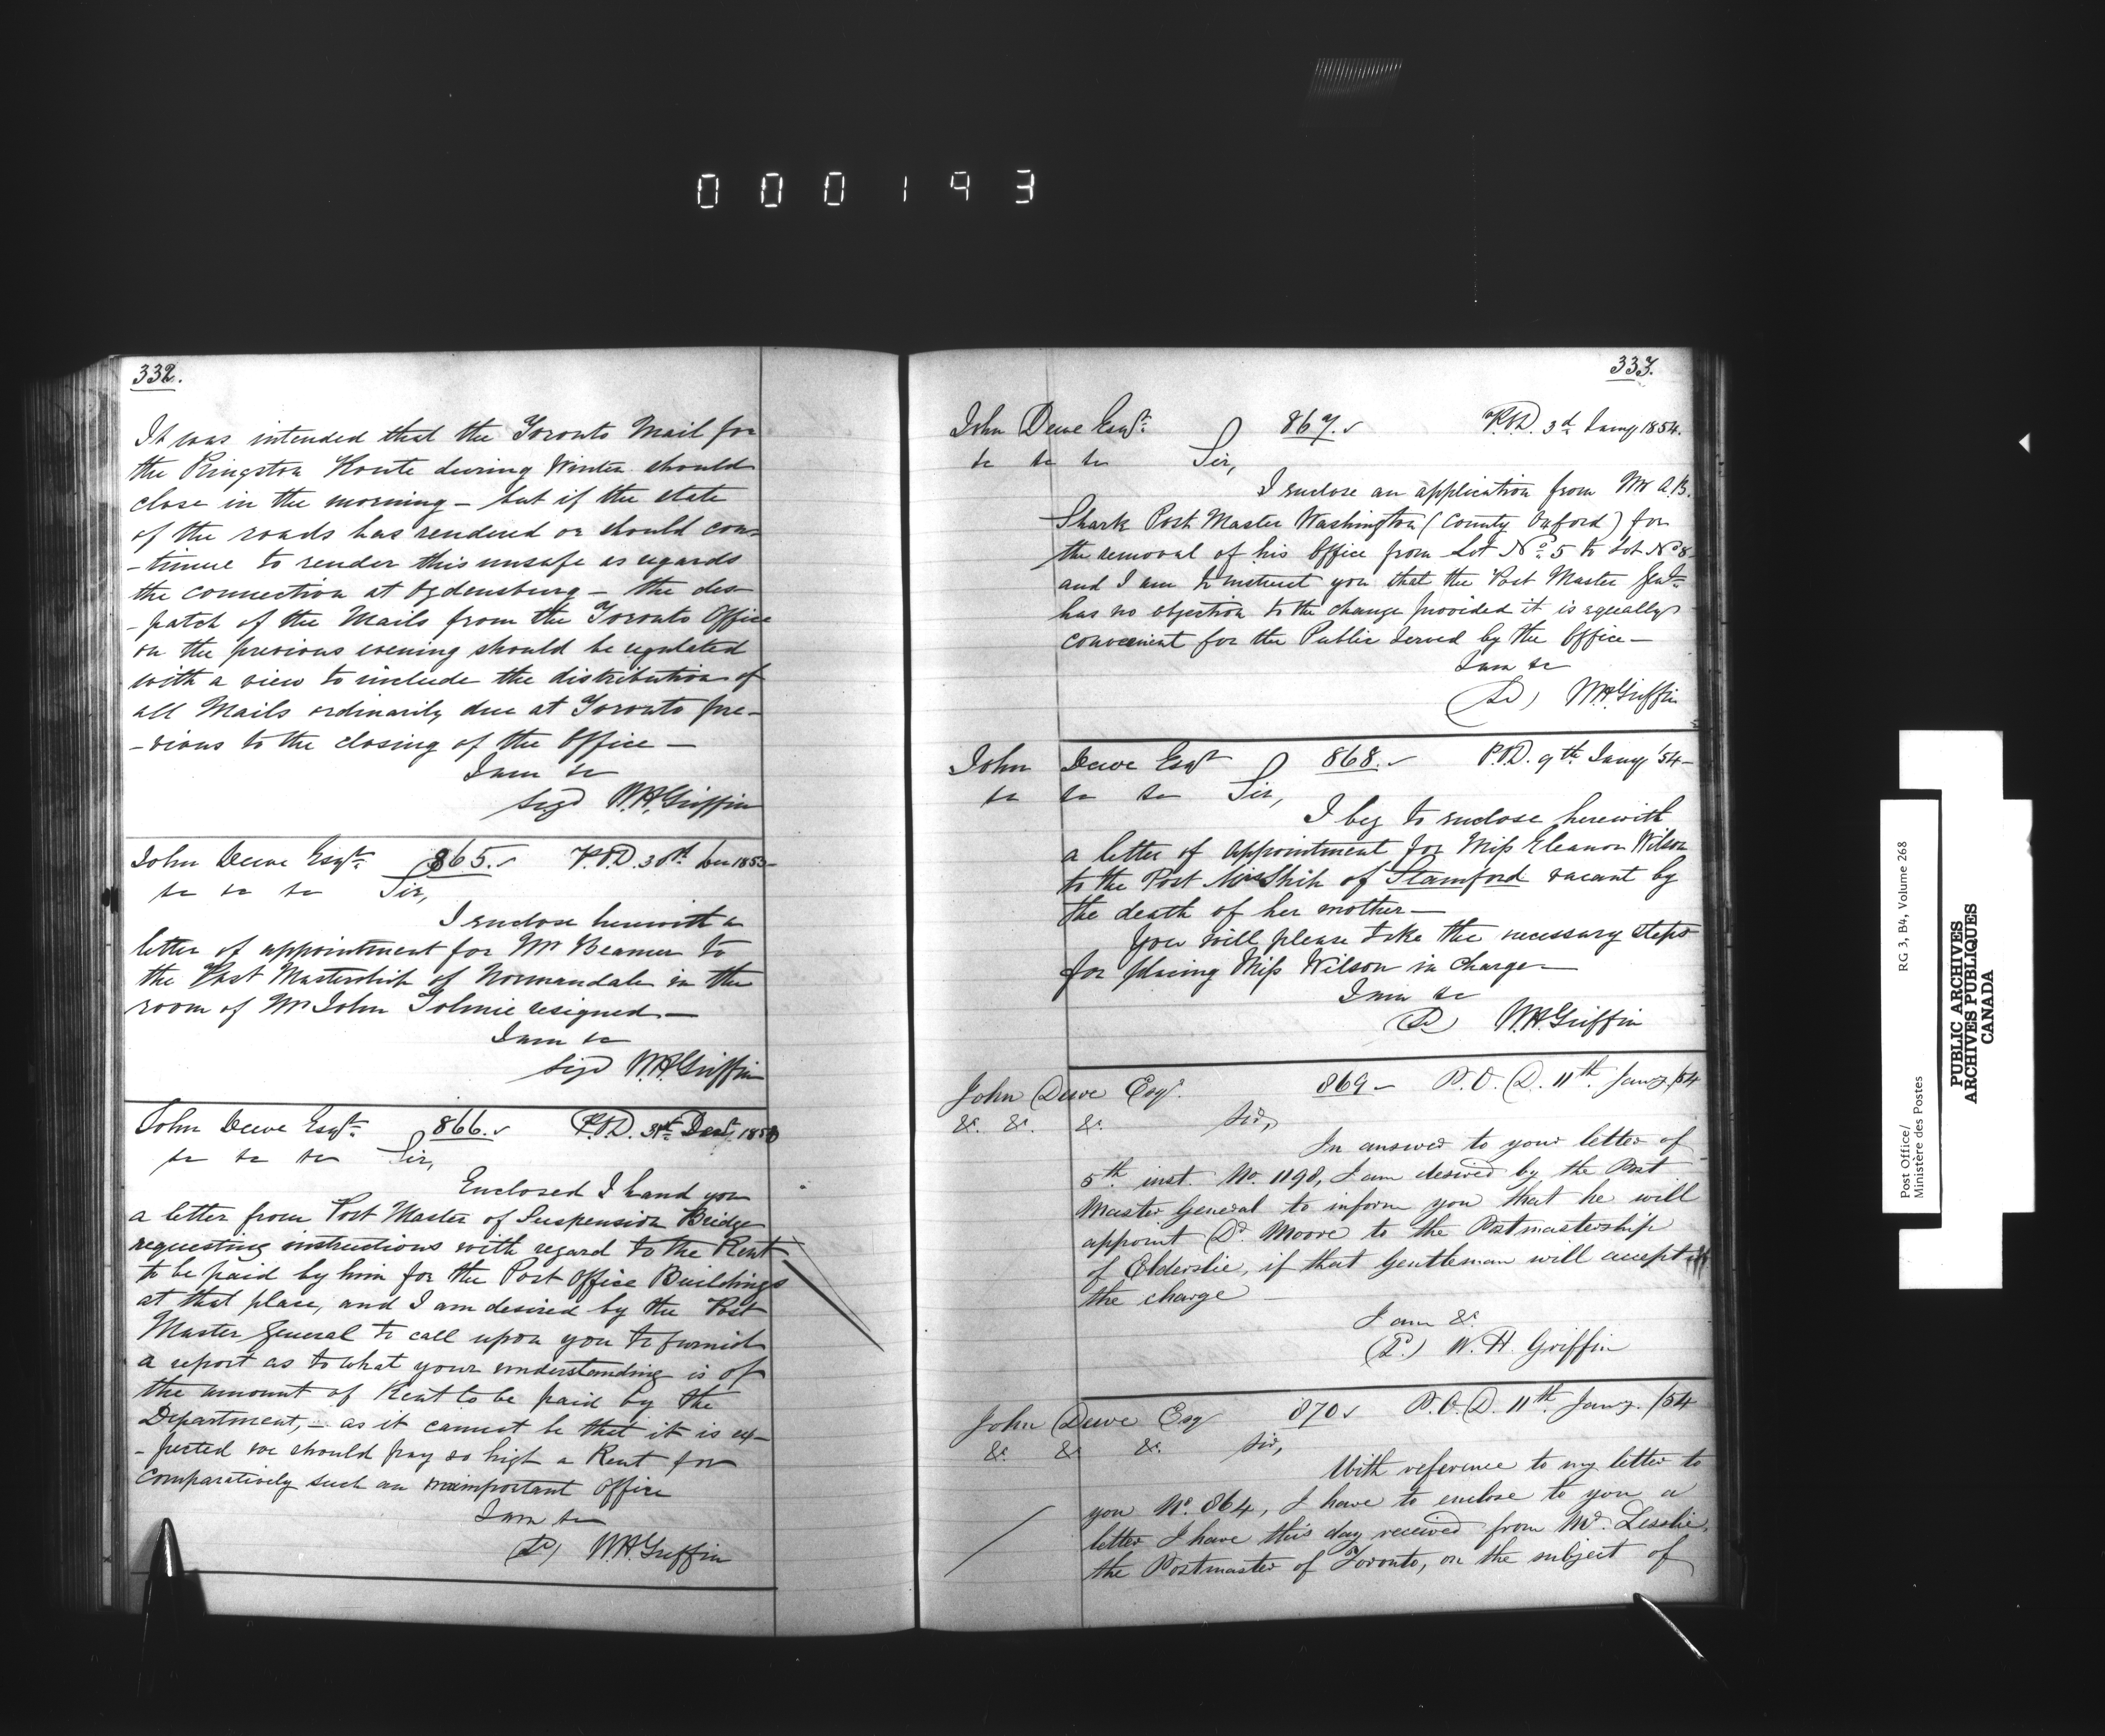 000193
332.
It was intended that the Toronto Mail for
the Kingston Route during Winter should
close in the morning — but if the state
of the roads has rendered or should con-
-tinue to render this unsafe as regards
the connection at Ogdensburg — the des-
-patch of the Mails from the Toronto Office
on the previous evening should be regulated
with a view to include the distribution of
all Mails ordinarily due at Toronto pre-
-vious to the closing of the Office —
I am &c
Sigd W.H. Griffin
John Dewe Esqr. 865. P.O.D. 30th Dec 1853
&c &c &c Sir,
I enclose herewith a
letter of appointment for Mr Beamer to
the Post Mastership of Normandale in the
room of Mr John Tolmie resigned. —
I am &c
Sigd W.H. Griffin
John Dewe Esqr. 866. P.O.D. 31st Decr. 1853
&c &c &c Sir,
Enclosed I hand you
a letter from Post Master of Suspension Bridge
requesting instructions with regard to the Rent
to be paid by him for the Post Office Buildings
at that place, and I am desired by the Post
Master General to call upon you to furnish
a report as to what your understanding is of
the amount of Rent to be paid by the
Department, — as it cannot be that it is ex-
-pected we should pay so high a Rent for
comparatively such an unimportant Office
I am &c
(Sd) W.H. Griffin
333.
John Dewe Esqr. 867. P.O.D. 3d Jany 1854.
&c &c &c Sir,
I enclose an application from Mr A.B.
Shark Post Master Washington (County Oxford) for
the removal of his Office from Lot No. 5 to Lot No 8
and I am to instruct you that the Post Master Genl.
has no objection to the change provided it is equally
convenient for the Public served by the Office —
I am &c
(Sd) W.H. Griffin
John Dewe Esqr 868. P.O.D. 9th Jany '54 —
&c &c &c Sir,
I beg to enclose herewith
a letter of appointment for Miss Eleanor Wilson
to the Post MisShip of Stamford vacant by
the death of her mother —
You will please take the necessary steps
for placing Miss Wilson in charge —
I am &c
(Sd) W.H. Griffin
John Dewe Esqr. 869 — P.O.D. 11th Jany /54
&c. &c. &c. Sir,
In answer to your letter of
5th inst. No. 1198, I am desired by the Post
Master General to inform you that he will
appoint Dr. Moore to the Postmastership
of Elderslie, if that Gentleman will accept
the charge —
I am &c.
(Sd.) W. H. Griffin
John Dewe Esq 870 P.O.D. 11th Jany. /54
&c. &c &c. Sir,
With reference to my letter to
you No. 864, I have to enclose to you a
letter I have this day received from Mr. Lesslie,
the Postmaster of Toronto, on the subject of
Post Office/
Ministère des Postes
RG 3, B4, Volume 268
PUBLIC ARCHIVES
ARCHIVES PUBLIQUES
CANADA